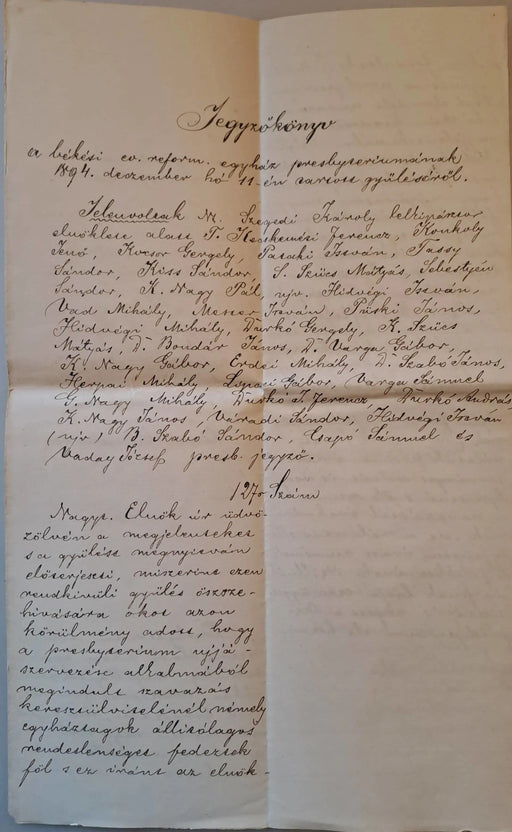 Jegyzőkönyv
a békési ev. reform. egyház presbyteriumának
1894. deczember hó 11-én tartott gyűléséről.
Jelenvoltak Nt. Szegedi Károly lelkipásztor
elnöklete alatt T. Kecskeméti Ferencz, Konkoly
Jenő, Kocsor Gergely, Pataki István, Tassy
Sándor, Kiss Sándor, S. Szücs Mátyás, Sebestyén
Sándor, K. Nagy Pál, ifjv. Hidvégi István,
Vad Mihály, István, Püski János,
Hidvégi Mihály, Durkó Gergely, K. Szücs
Mátyás, D. Bondár János, D. Varga Gábor,
K. Nagy Gábor, Erdei Mihály, D. Szabó János,
Mihály, Gábor, Varga Sámuel
G. Nagy Mihály, Durkó Ferencz Durkó András,
K. Nagy János, Váradi Sándor, Hidvégi István
B. Szabó Sándor, Csapó Sámuel és
Vaday József presb. jegyző.
127. Szám
Nagyt. Elnök úr üdvö-
zölvén a megjelenteket
s a gyűlést megnyitván
előterjeszti, miszerint ezen
rendkívüli gyűlés öszsze-
hívására okot azon
körülmény adott, hogy
a presbyterium ujjá-
szervezése alkalmából
megindult szavazás
keresztülvitelénél némely
egyháztagok állitólagos
rendetlenséget fedeztek
föl s ez iránt az elnök-